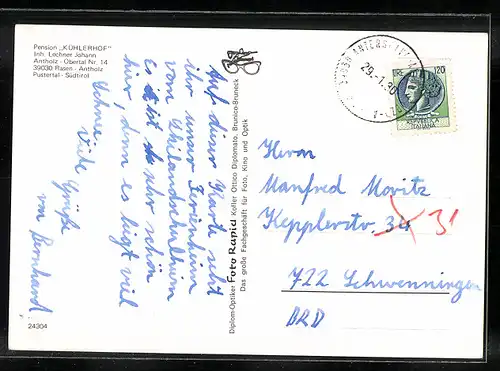 Pension „KÜHLERHOF"
Inh. Lechner Johann
Antholz - Obertal Nr. 14
39030 Rasen - Antholz
Pustertal - Südtirol
Auf dieser Karte seht
ihr unser Ferienheim
vom Skilandschulheim
es ist sehr schön
hier, denn es liegt viel
Schnee
Viele Grüße
von Bernhard
24304
Diplom-Optiker Foto Rapid Kofler Ottico Diplomato, Brunico-Bruneck
Das große Fachgeschäft für Foto, Kino und Optik
29.-1.80
LIRE 120
ITALIANA
Herrn
Manfred Moritz
Kepplerstr. 34 31
722 Schwenningen
BRD